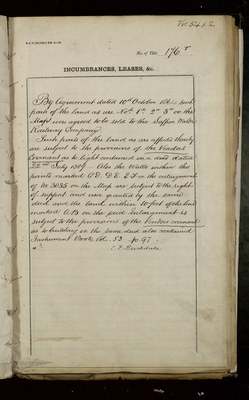 No. of Title, 176
INCUMBRANCES, LEASES, &c.
By Agreement dated 10th October 1861 such
parts of the land as are Nos. 1a 2a 3a on the
Map were agreed to be sold to the Saffron Walden
Railway Company
Such parts of the land as are affected thereby
are subject to the provisions of the Vendors
Covenant as to light contained in a deed dated
July Also the Walls within the
points marked C.D. D.E. E.F. on the enlargement
of No. 3035 on the Map are subject to the right
of support and user granted by the same
deed and the land within 10 feet of the line
marked A.B. on the said enlargement is
subject to the provisions of the Vendors covenant
as to building in the same deed also contained
Instrument Book Vol. 53 p. 97.